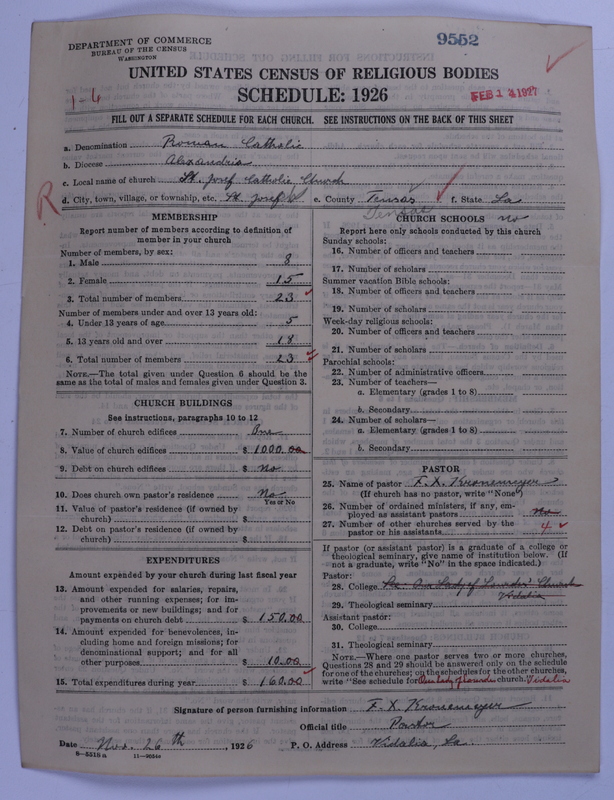 DEPARTMENT OF COMMERCE
BUREAU OF THE CENSUS
WASHINGTON
9552
UNITED STATES CENSUS OF RELIGIOUS BODIES
SCHEDULE: 1926
1-4
FEB 1 2 1927
FILL OUT A SEPARATE SCHEDULE FOR EACH CHURCH. SEE INSTRUCTIONS ON THE BACK OF THIS SHEET
a. Denomination Roman Catholic
b. Diocese Alexandria
c. Local name of church St. Josef Catholic Church
R
d. City, town, village, or township, etc. St. Josef e. County Tensas f. State La
Tensas
MEMBERSHIP
Report number of members according to definition of
member in your church
Number of members, by sex:
1. Male 8
2. Female 15
3. Total number of members 23
Number of members under and over 13 years old:
4. Under 13 years of age 5
5. 13 years old and over 18
6. Total number of members 23
NOTE.—The total given under Question 6 should be the
same as the total of males and females given under Question 3.
CHURCH BUILDINGS
See instructions, paragraphs 10 to 12
7. Number of church edifices One
8. Value of church edifices $ 1000.00
9. Debt on church edifices $ No
10. Does church own pastor's residence No
Yes or No
11. Value of pastor's residence (if owned by
church) $
12. Debt on pastor's residence (if owned by
church) $
EXPENDITURES
Amount expended by your church during last fiscal year
13. Amount expended for salaries, repairs,
and other running expenses; for im-
provements or new buildings; and for
payments on church debt $ 150.00
14. Amount expended for benevolences, in-
cluding home and foreign missions; for
denominational support; and for all
other purposes $ 10.00
15. Total expenditures during year $ 160.00
CHURCH SCHOOLS no
Report here only schools conducted by this church
Sunday schools:
16. Number of officers and teachers
17. Number of scholars
Summer vacation Bible schools:
18. Number of officers and teachers
19. Number of scholars
Week-day religious schools:
20. Number of officers and teachers
21. Number of scholars
Parochial schools:
22. Number of administrative officers
23. Number of teachers—
a. Elementary (grades 1 to 8)
b. Secondary
24. Number of scholars—
a. Elementary (grades 1 to 8)
b. Secondary
PASTOR
25. Name of pastor F. X. Kronemeyer
(If church has no pastor, write "None")
26. Number of ordained ministers, if any, em-
ployed as assistant pastors No
27. Number of other churches served by the
pastor or his assistants 4
If pastor (or assistant pastor) is a graduate of a college or
theological seminary, give name of institution below. (If
not a graduate, write "No" in the space indicated.)
Pastor:
28. College Our Lady of Lourdes' Church
Vidalia
29. Theological seminary
Assistant pastor:
30. College
31. Theological seminary
NOTE.—Where one pastor serves two or more churches,
Questions 28 and 29 should be answered only on the schedule
for one of the churches; on the schedules for the other churches,
write "See schedule for Our Lady of Lourdes church." Vidalia
Signature of person furnishing information F. X. Kronemeyer
Official title Pastor
Date Nov. 26th, 1926 P. O. Address Vidalia, La.
8-5518a 11-9034